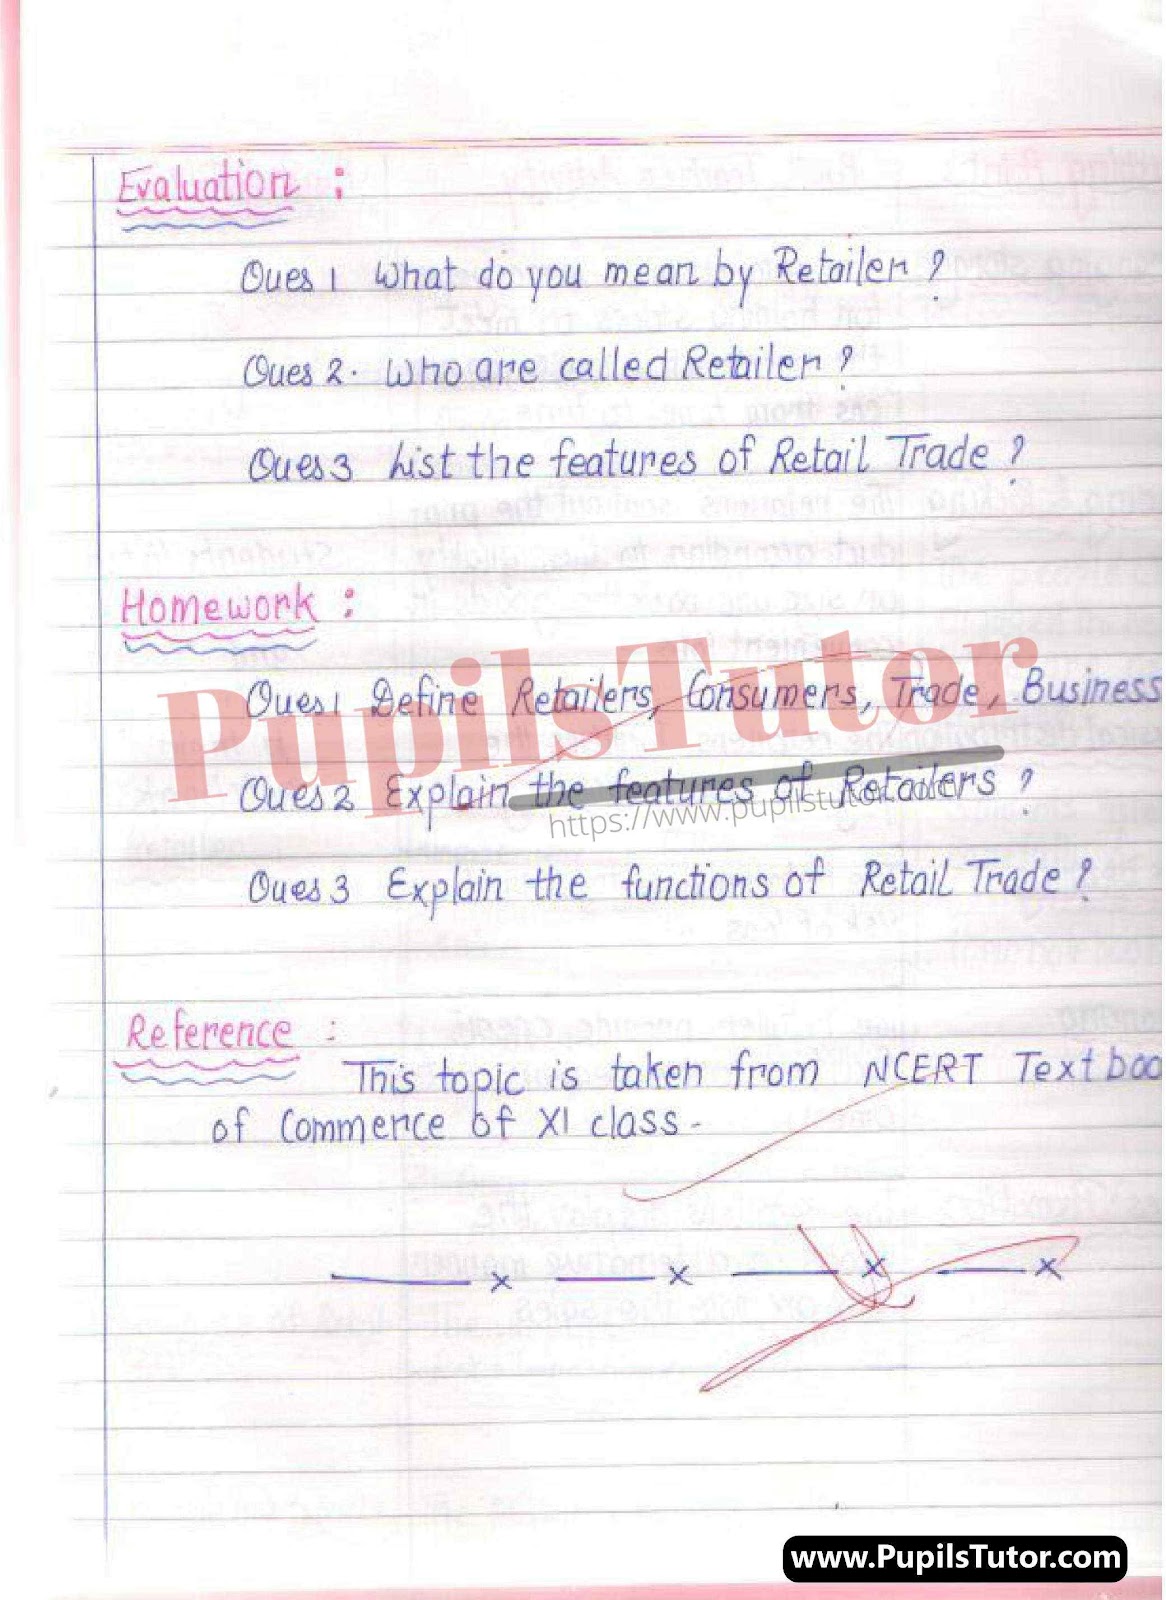 Evaluation :
Ques 1 What do you mean by Retailer ?
Ques 2. Who are called Retailer ?
Ques 3 List the features of Retail Trade ?
Homework :
PupilsTutor
Ques 1 Define Retailers, Consumers, Trade, Business
Ques 2 Explain the features of Retailers ?
https://www.pupilstutor.
Ques 3 Explain the functions of Retail Trade ?
Reference :
This topic is taken from NCERT Text boo
of Commerce of XI class.
x x x x
www.PupilsTutor.com